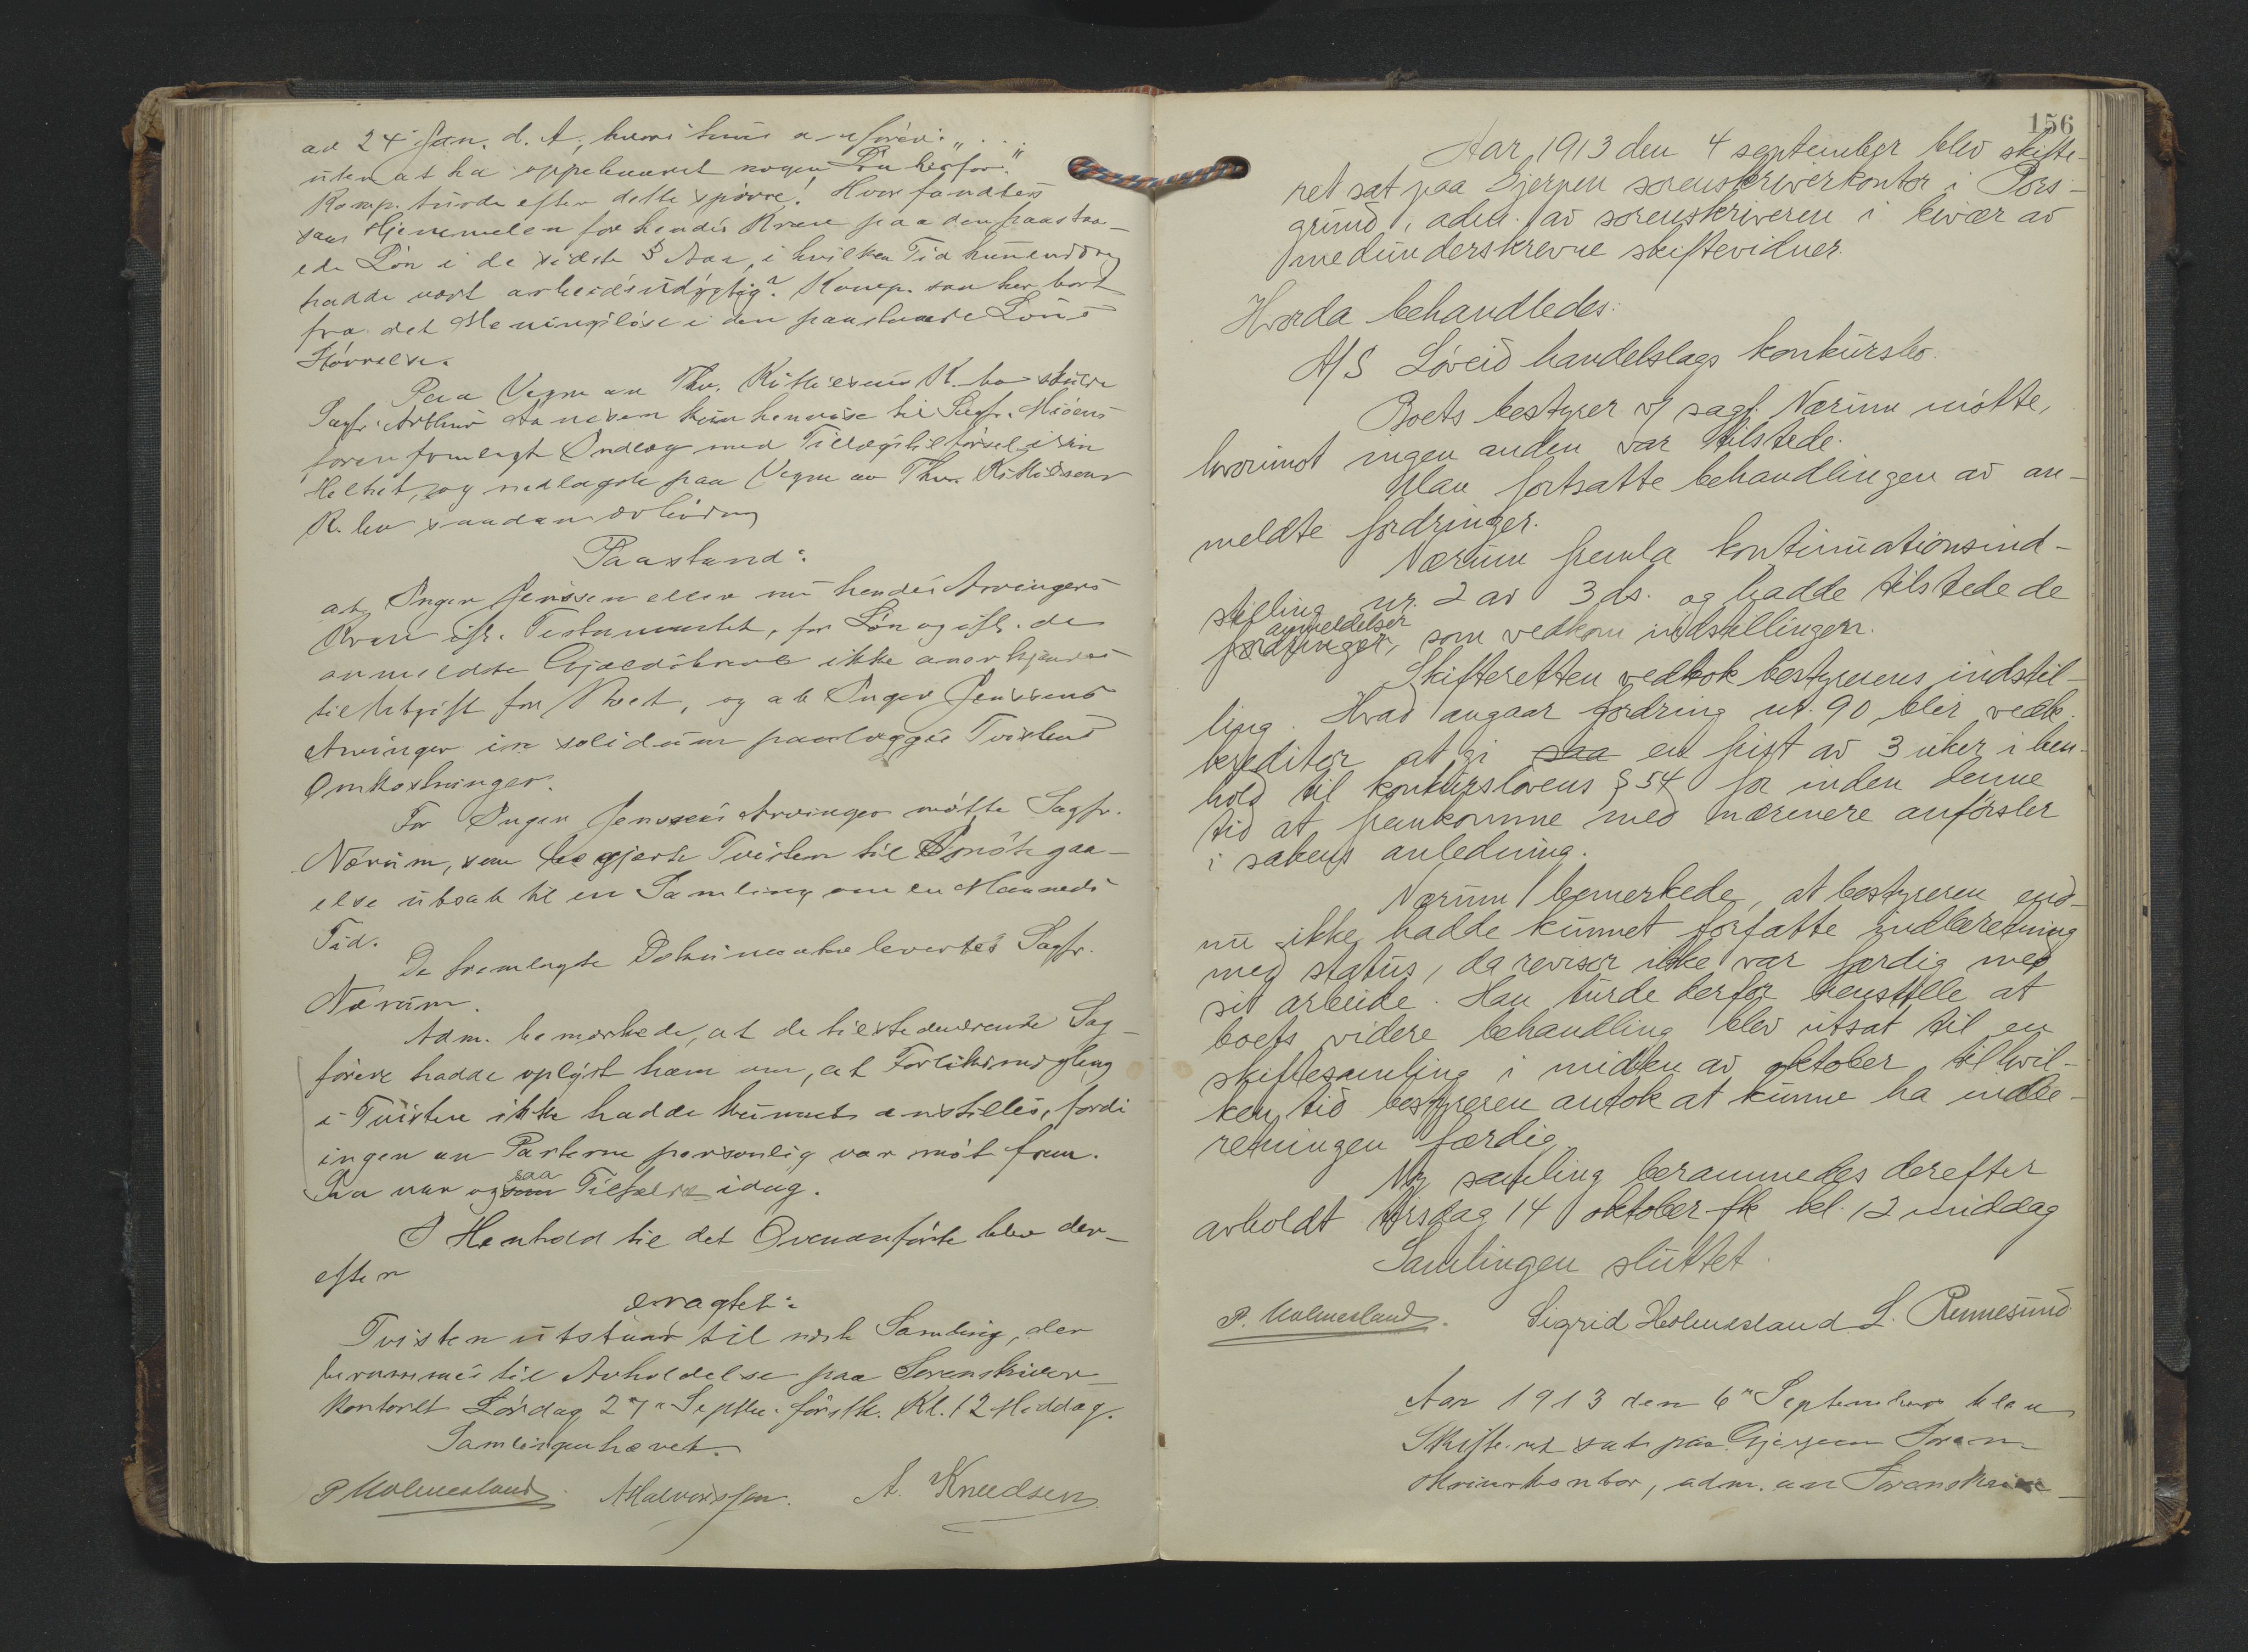 av 24 Jan. d. A., hvori hun anfører: „. . .
uten at ha oppebaaret nogen Løn herfor."
Komp. turde efter dette spørre! Hvor fandtes
saa Hjemmelen for hendes Krav paa den paastaa-
ede Løn i de sidste 5 Aar, i hvilken Tid hun endog
hadde vært arbeidsudygtig? Komp. saa her bort
fra det Meningsløse i den paastaaede Løns
Størrelse.
Paa Vegne av Thv. Kittilsens K. bo skulde
Sagfr. Arthur Aanesen kun henvise til Sagfr.
foran fremlagt Indlæg med Tillægstilførsel i sin
Helhet, og nedlagde paa Vegne av Thv. Kittilsens
K. bo saadan
Paastand:
at Inger Jenssen eller nu hendes Arvingers
Krav ifl. Testamentet, for Løn og ifl. de
anmeldte Gjældsbrev ikke anerkjendes
til Utgift for Boet, og at Inger Jenssens
Arvinger in solidum paalægges Tvistens
Omkostninger.
For Inger Jenssens Arvinger møtte Sagfr.
Nærum, som begjærte Tvisten til Imøtegaa-
else utsat til en Samling om en Maaneds
Tid.
De fremlagte Dokumenter levertes Sagfr.
Nærum.
Adm. bemerkede, at de tilstedeværende Sag-
førere hadde oplyst ham om, at Forliksmægling
i Tvisten ikke hadde kunnet anstilles, fordi
ingen av Parterne personlig var møt frem.
saa
Saa var og som Tilfælde idag.
I Henhold til det Ovenanførte blev der-
efter
eragtet:
Tvisten utstaar til næste Samling, der
berammes til Avholdelse paa Sorenskriver-
kontoret Lørdag 27. Septbr. førstk. Kl. 12 Middag.
Samlingen hævet.
P. Holmesland. A. Knudsen
156
Aar 1913 den 4 september blev skifte-
ret sat paa Gjerpen sorenskriverkontor i Pors-
grund, adm. av sorenskriveren i hvær av
medunderskrevne skiftevidner.
Hvorda behandledes:
A/S Løveid handelslags konkursbo.
Boets bestyrer v/ sagf. Nærum møtte,
hvorimot ingen anden var tilstede.
Man fortsatte behandlingen av an-
meldte fordringer.
Nærum fremla kontinuationsind-
stilling nr. 2 av 3 ds. og hadde tilstede de
anmeldelser
fordringer, som vedkom indstillingen.
Skifteretten vedtok bestyrerens indstil-
ling. Hvad angaar fordring nr. 90 blir vedk.
kreditor at gi saa en frist av 3 uker i hen-
hold til konkurslovens § 54 for inden denne
tid at fremkomme med nærmere anførsler
i sakens anledning.
Nærum bemerkede, at bestyreren end-
nu ikke hadde kunnet forfatte indberetning
med status, da revisor ikke var færdig med
sit arbeide. Han turde derfor henstille at
boets videre behandling blev utsat til en
skiftesamling i midten av oktober, til hvil-
ken tid bestyreren antok at kunne ha indbe-
retningen færdig.
Ny samling berammedes derefter
avholdt tirsdag 14 oktober fk kl. 12 middag
Samlingen sluttet.
P. Holmesland. Sigrid Holmesland L. Rennesund
Aar 1913 den 6te September blev
Skifteret sat paa Gjerpen Soren-
skriverkontor, adm. av Sorenskrive-